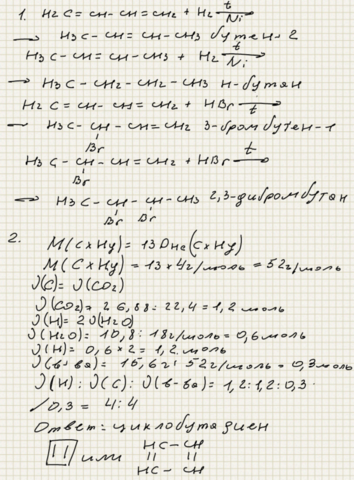 1. H₂C=CH-CH=CH₂ + H₂ t/Ni →
→ H₃C-CH=CH-CH₃ бутен-2
H₃C-CH=CH-CH₃ + H₂ t/Ni →
→ H₃C-CH₂-CH₂-CH₃ н-бутан
H₂C=CH-CH=CH₂ + HBr t →
→ H₃C-CH-CH=CH₂ 3-бромбутен-1
Br
H₃C-CH-CH=CH₂ + HBr t →
Br
→ H₃C-CH-CH-CH₃ 2,3-дибромбутан
Br Br
2.
M(CxHy) = 13 DHe(CxHy)
M(CxHy) = 13×4г/моль = 52г/моль
ν(C) = ν(CO₂)
ν(CO₂) = 26,88 : 22,4 = 1,2 моль
ν(H) = 2ν(H₂O)
ν(H₂O) = 10,8 : 18г/моль = 0,6моль
ν(H) = 0,6×2 = 1,2 моль
ν(в-ва) = 15,6г : 52г/моль = 0,3моль
ν(H) : ν(C) : ν(в-ва) = 1,2:1,2:0,3
/0,3 = 4:4
Ответ: циклобутадиен
или HC-CH
HC-CH